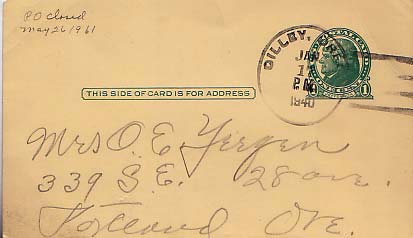 PO closed
May 26 1961
DILLEY, ORE.
JAN
1
P.M.
1940
1
THIS SIDE OF CARD IS FOR ADDRESS
Mrs O. E. Yergen
339 S.E. 28 ave.
Portland Ore.